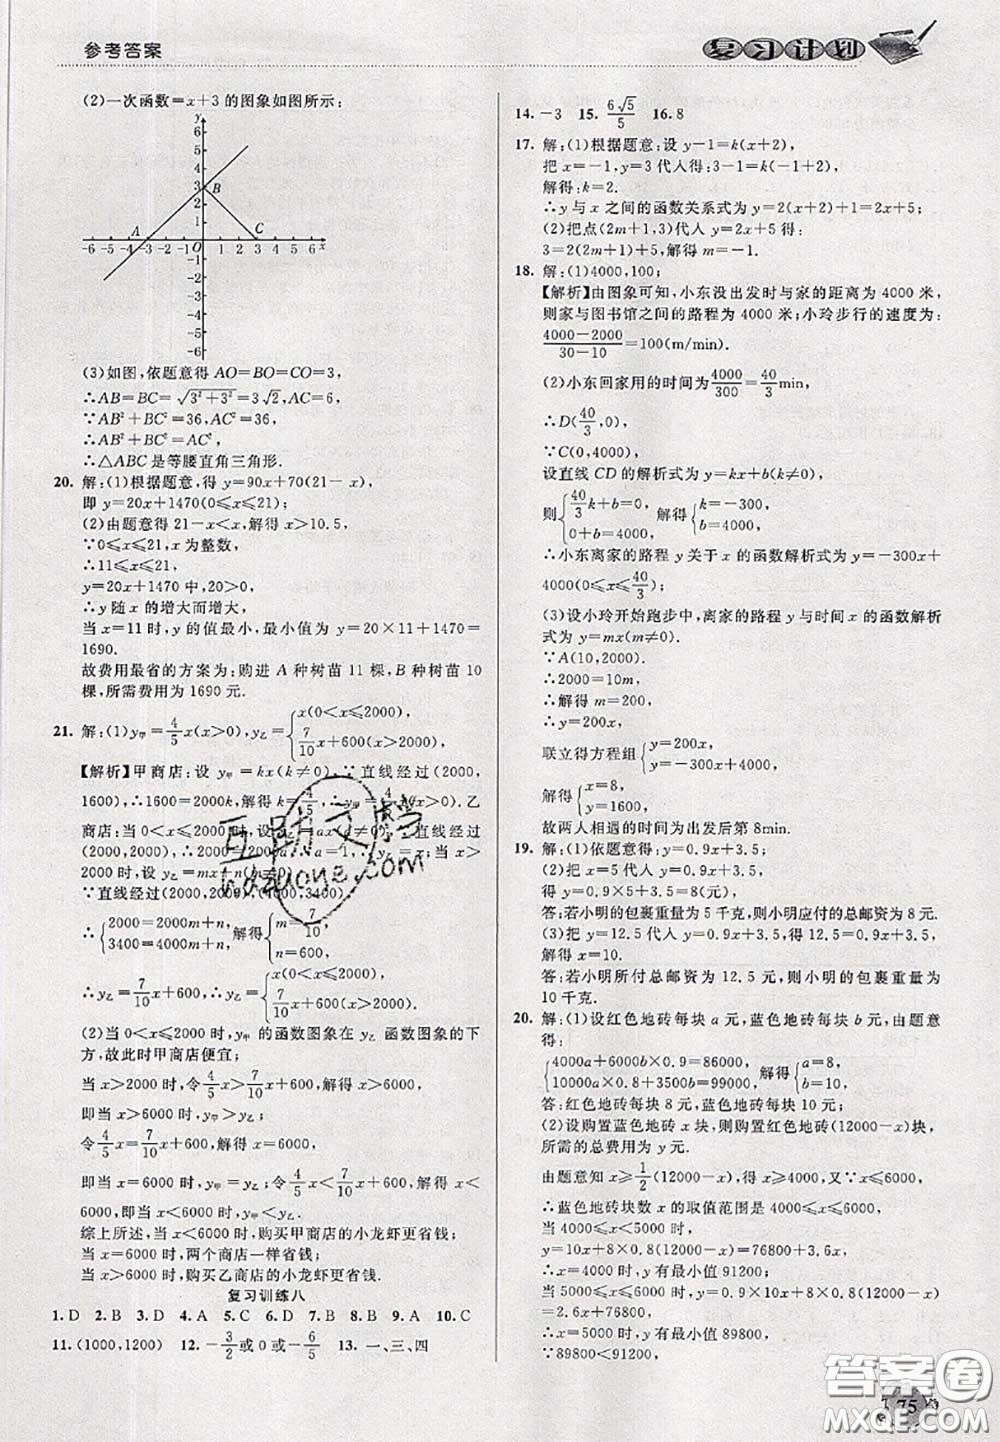 参考答案
复习计划
(2)一次函数=x+3的图象如图所示:
y
6
5
4
3 B
2
1
A C
-6 -5 -4 -3 -2 -1 O 1 2 3 4 5 6 x
-1
-2
-3
-4
-5
-6
(3)如图,依题意得 AO=BO=CO=3,
∴AB=BC=√(3²+3²)=3√2,AC=6,
∵AB²+BC²=36,AC²=36,
∴AB²+BC²=AC²,
∴△ABC是等腰直角三角形.
20. 解:(1)根据题意,得 y=90x+70(21-x),
即 y=20x+1470(0⩽x⩽21);
(2)由题意得21-x<x,解得 x>10.5,
∵0⩽x⩽21,x 为整数,
∴11⩽x⩽21,
y=20x+1470中,20>0,
∴y 随 x 的增大而增大,
当 x=11时,y 的值最小,最小值为 y=20×11+1470=
1690.
故费用最省的方案为:购进 A 种树苗 11 棵,B 种树苗 10
棵,所需费用为1690元.
21. 解:(1)y甲=4/5x(x>0),y乙={x(0<x⩽2000), 7/10x+600(x>2000),
【解析】甲商店:设 y甲=kx(k≠0),∵直线经过(2000,
1600),∴1600=2000k,解得 k=4/5,∴y甲=4/5x(x>0).乙
商店:当 0<x⩽2000时,设 =ax(a≠0),∵直线经过
(2000,2000),∴2000=2000a,∴a=1,∴y乙=x.当 x>
2000时,设 y乙=mx+n(m≠0),
∵直线经过(2000,2000),(1000,3400),
∴{2000=2000m+n, 3400=4000m+n,解得{m=7/10, n=600,
∴y乙=7/10x+600,∴y乙={x(0<x⩽2000), 7/10x+600(x>2000);
(2)当 0<x⩽2000时,y甲的函数图象在 y乙函数图象的下
方,故此时甲商店便宜;
当 x>2000时,令4/5x>7/10x+600,解得 x>6000,
即当 x>6000时,y甲>y乙;
令4/5x=7/10x+600,解得 x=6000,
即当 x=6000时,y甲=y乙;令4/5x<7/10x+600,解得 x<6000,
即当 x<6000时,y甲<y乙.
综上所述,当 x<6000时,购买甲商店的小龙虾更省钱;
当 x=6000时,两个商店一样省钱;
当 x>6000时,购买乙商店的小龙虾更省钱.
复习训练八
1. D 2. B 3. D 4. A 5. C 6. D 7. B 8. B 9. A 10. C
11. (1000,1200) 12. -3/2或0或-6/5 13. 一、三、四
14. -3 15. 6√5/5 16. 8
17. 解:(1)根据题意:设 y-1=k(x+2),
把 x=-1,y=3代人得:3-1=k(-1+2),
解得:k=2.
∴y 与 x 之间的函数关系式为 y=2(x+2)+1=2x+5;
(2)把点(2m+1,3)代人 y=2x+5得:
3=2(2m+1)+5,解得 m=-1.
18. 解:(1)4000,100;
【解析】由图象可知,小东没出发时与家的距离为 4000 米,
则家与图书馆之间的路程为 4000 米;小玲步行的速度为:
4000-2000/30-10=100(m/min).
(2)小东回家用的时间为4000/300=40/3min,
∴D(40/3,0),
∵C(0,4000),
设直线 CD 的解析式为 y=kx+b(k≠0),
则{40/3k+b=0, 0+b=4000,解得{k=-300, b=4000,
∴小东离家的路程 y 关于 x 的函数解析式为 y=-300x+
4000(0⩽x⩽40/3);
(3)设小玲开始跑步中,离家的路程 y 与时间 x 的函数解析
式为 y=mx(m≠0).
∵A(10,2000),
∴2000=10m,
∴解得 m=200,
∴y=200x,
联立得方程组{y=200x, y=-300x+4000,
解得{x=8, y=1600,
故两人相遇的时间为出发后第 8min.
19. 解:(1)依题意得:y=0.9x+3.5;
(2)把 x=5代人 y=0.9x+3.5,
解得 y=0.9×5+3.5=8(元),
答:若小明的包裹重量为 5 千克,则小明应付的总邮资为 8 元.
(3)把 y=12.5代人 y=0.9x+3.5,得 12.5=0.9x+3.5,
解得 x=10.
答:若小明所付总邮资为 12.5 元,则小明的包裹重量为
10 千克.
20. 解:(1)设红色地砖每块 a 元,蓝色地砖每块 b 元,由题意
得:
{4000a+6000b×0.9=86000, 10000a×0.8+3500b=99000,解得{a=8, b=10.
答:红色地砖每块 8 元,蓝色地砖每块 10 元.
(2)设购置蓝色地砖 x 块,则购置红色地砖(12000-x)块,
所需的总费用为 y 元.
由题意知 x⩾1/2(12000-x),得 x⩾4000,又∵x⩽6000,
∴蓝色地砖块数 x 的取值范围是 4000⩽x⩽6000,
当 4000⩽x<5000时,
y=10x+8×0.8(12000-x)=76800+3.6x,
∴x=4000时,y 有最小值 91200,
当 5000⩽x⩽6000时,y=0.9×10x+8×0.8(12000-x)
=2.6x+76800,
∴x=5000时,y 有最小值 89800,
∵89800<91200,
75
互助文档
huzuone.com
答案圈
MXQE.COM